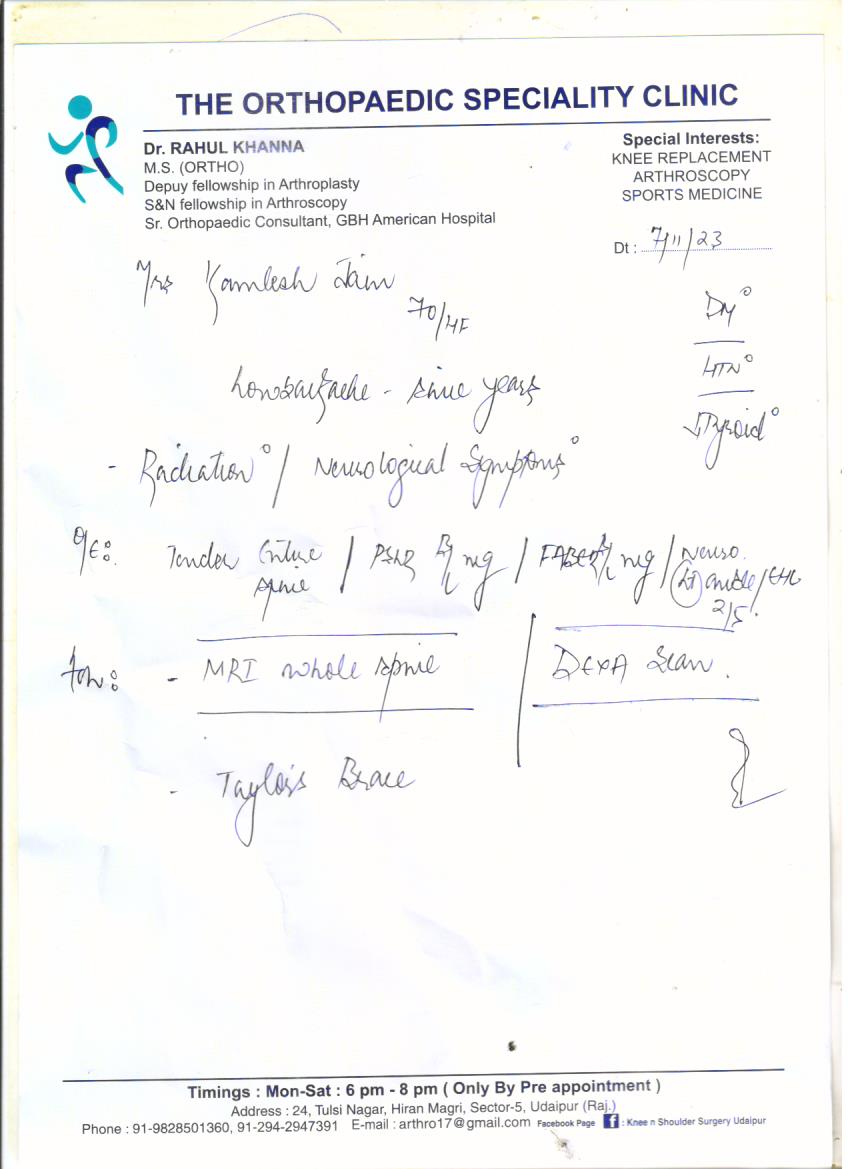 THE ORTHOPAEDIC SPECIALITY CLINIC
Dr. RAHUL KHANNA
M.S. (ORTHO)
Depuy fellowship in Arthroplasty
S&N fellowship in Arthroscopy
Sr. Orthopaedic Consultant, GBH American Hospital
Special Interests:
KNEE REPLACEMENT
ARTHROSCOPY
SPORTS MEDICINE
Dt : 7/11/23
Mrs Kamlesh Jain
70/
DM°
HTN°
Thyroid°
Lowbackache - since years
- Radiation° / Neurological Symptoms°
O/E: Tender Entire / / FABER / Neuro.
spine
ankle / EHL
2/5
- MRI whole spine
DEXA Scan.
- Taylor's Brace
Timings : Mon-Sat : 6 pm - 8 pm ( Only By Pre appointment )
Address : 24, Tulsi Nagar, Hiran Magri, Sector-5, Udaipur (Raj.)
Phone : 91-9828501360, 91-294-2947391 E-mail : arthro17@gmail.com Facebook Page f : Knee n Shoulder Surgery Udaipur